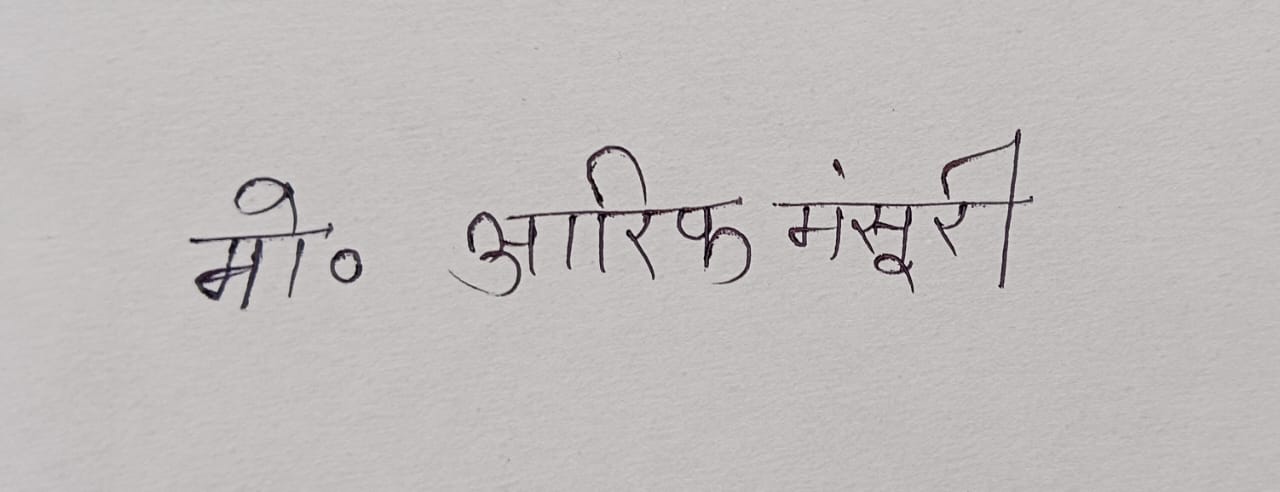 मो० आरिफ मंसूरी